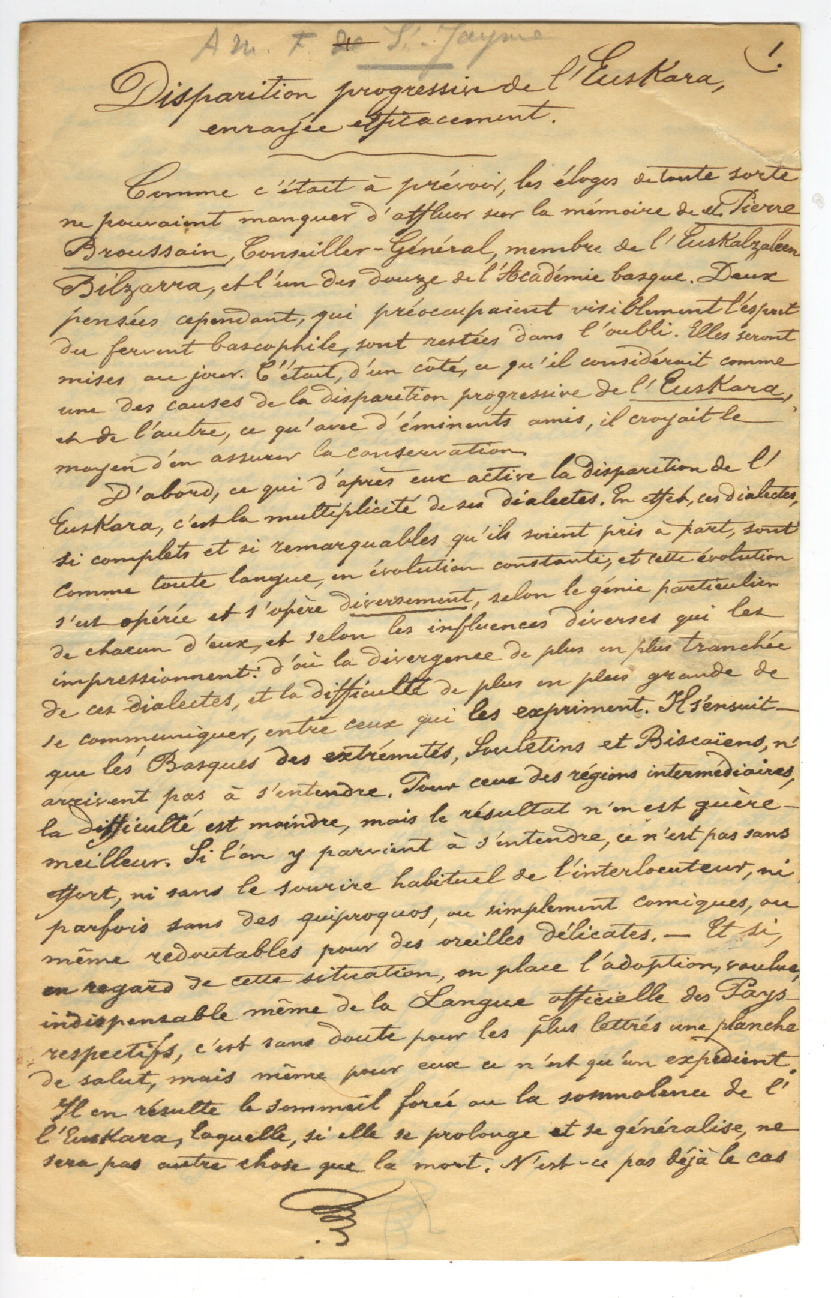 A M. F. de St. Jayme
1.
Disparition progressive de l'Euskara,
enrayée efficacement.
Comme c'était à prévoir, les éloges de toute sorte
ne pouvaient manquer d'affluer sur la mémoire de et Pierre
Broussain, Conseiller-Général, membre de l'Euskalzaleen
Bilzarra, et l'un des douze de l'Académie basque. Deux
pensées cependant, qui préoccupaient visiblement l'esprit
du fervent bascophile, sont restées dans l'oubli. Elles seront
mises au jour. C'était, d'un côté, ce qu'il considérait comme
une des causes de la disparition progressive de l'Euskara,
et de l'autre, ce qu'avec d'éminents amis, il croyait le
moyen d'en assurer la conservation.
D'abord, ce qui d'après eux active la disparition de l'
Euskara, c'est la multiplicité de ses dialectes. En effet, ces dialectes,
si complets et si remarquables qu'ils soient pris à part, sont
comme toute langue, en évolution constante, et cette évolution
s'est opérée et s'opère diversement, selon le génie particulier
de chacun d'eux, et selon les influences diverses qui les
impressionnent: d'où la divergence de plus en plus tranchée
de ces dialectes, et la difficulté de plus en plus grande de
se communiquer, entre ceux qui les expriment. Il s'ensuit
que les Basques des extrémités, Souletins et Biscaïens, n'
arrivent pas à s'entendre. Pour ceux des régions intermédiaires,
la difficulté est moindre, mais le résultat n'en est guère
meilleur. Si l'on y parvient à s'entendre, ce n'est pas sans
effort, ni sans le sourire habituel de l'interlocuteur, ni
parfois sans des quiproquos, ou simplement comiques, ou
même redoutables pour des oreilles délicates. — Et si,
en regard de cette situation, on place l'adoption, voulue,
indispensable même de la Langue officielle des Pays
respectifs, c'est sans doute pour les plus lettrés une planche
de salut, mais même pour eux ce n'est qu'un expédient.
Il en résulte le sommeil forcé ou la somnolence de l'
l'Euskara, laquelle, si elle se prolonge et se généralise, ne
sera pas autre chose que la mort. N'est-ce pas déjà le cas